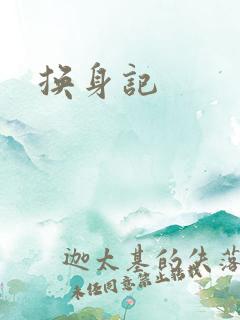 换身记
迦太基的失落
未经同意禁止转载